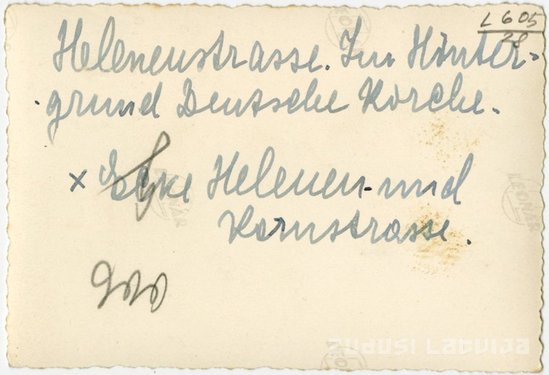 L 605
28
Helenenstrasse. Im Hinter-
grund Deutsche Kirche.
x Ecke Helenen-und
Kornstrasse.
Zudusi Latvija